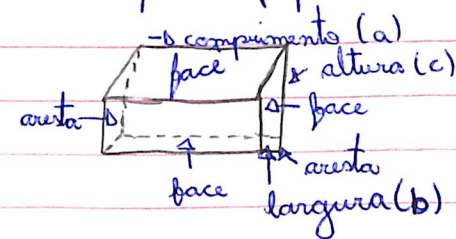 comprimento (a)
face
altura (c)
aresta
face
aresta
face
largura (b)